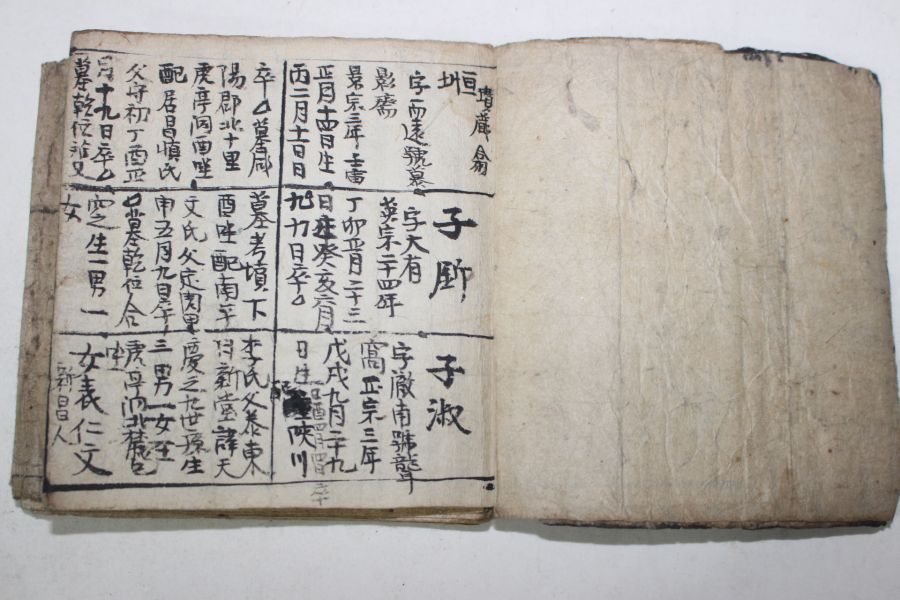 字而遠號慕
影齋
景宗三年壬寅
正月十四日生
丙二月十一日日
卒 墓咸
陽郡北十里
虎亭洞酉坐
配居昌愼氏
父守初丁酉正
月十九日卒
墓乾位
子
字大有
英宗二十四年
丁卯正月二十三
日生癸亥六月
九日卒
墓考墳下
酉坐配南平
文氏父定周甲
申五月九日卒
墓乾位合
窆生一男一
女
子淑
字澈甫號聾
窩正宗三年
戊戌九月二十九
日生 陜川
李氏父泰東
新堂諱天
慶之九世孫生
三男一女墓
虎亭洞北麓巳
坐
女表仁文
新昌人